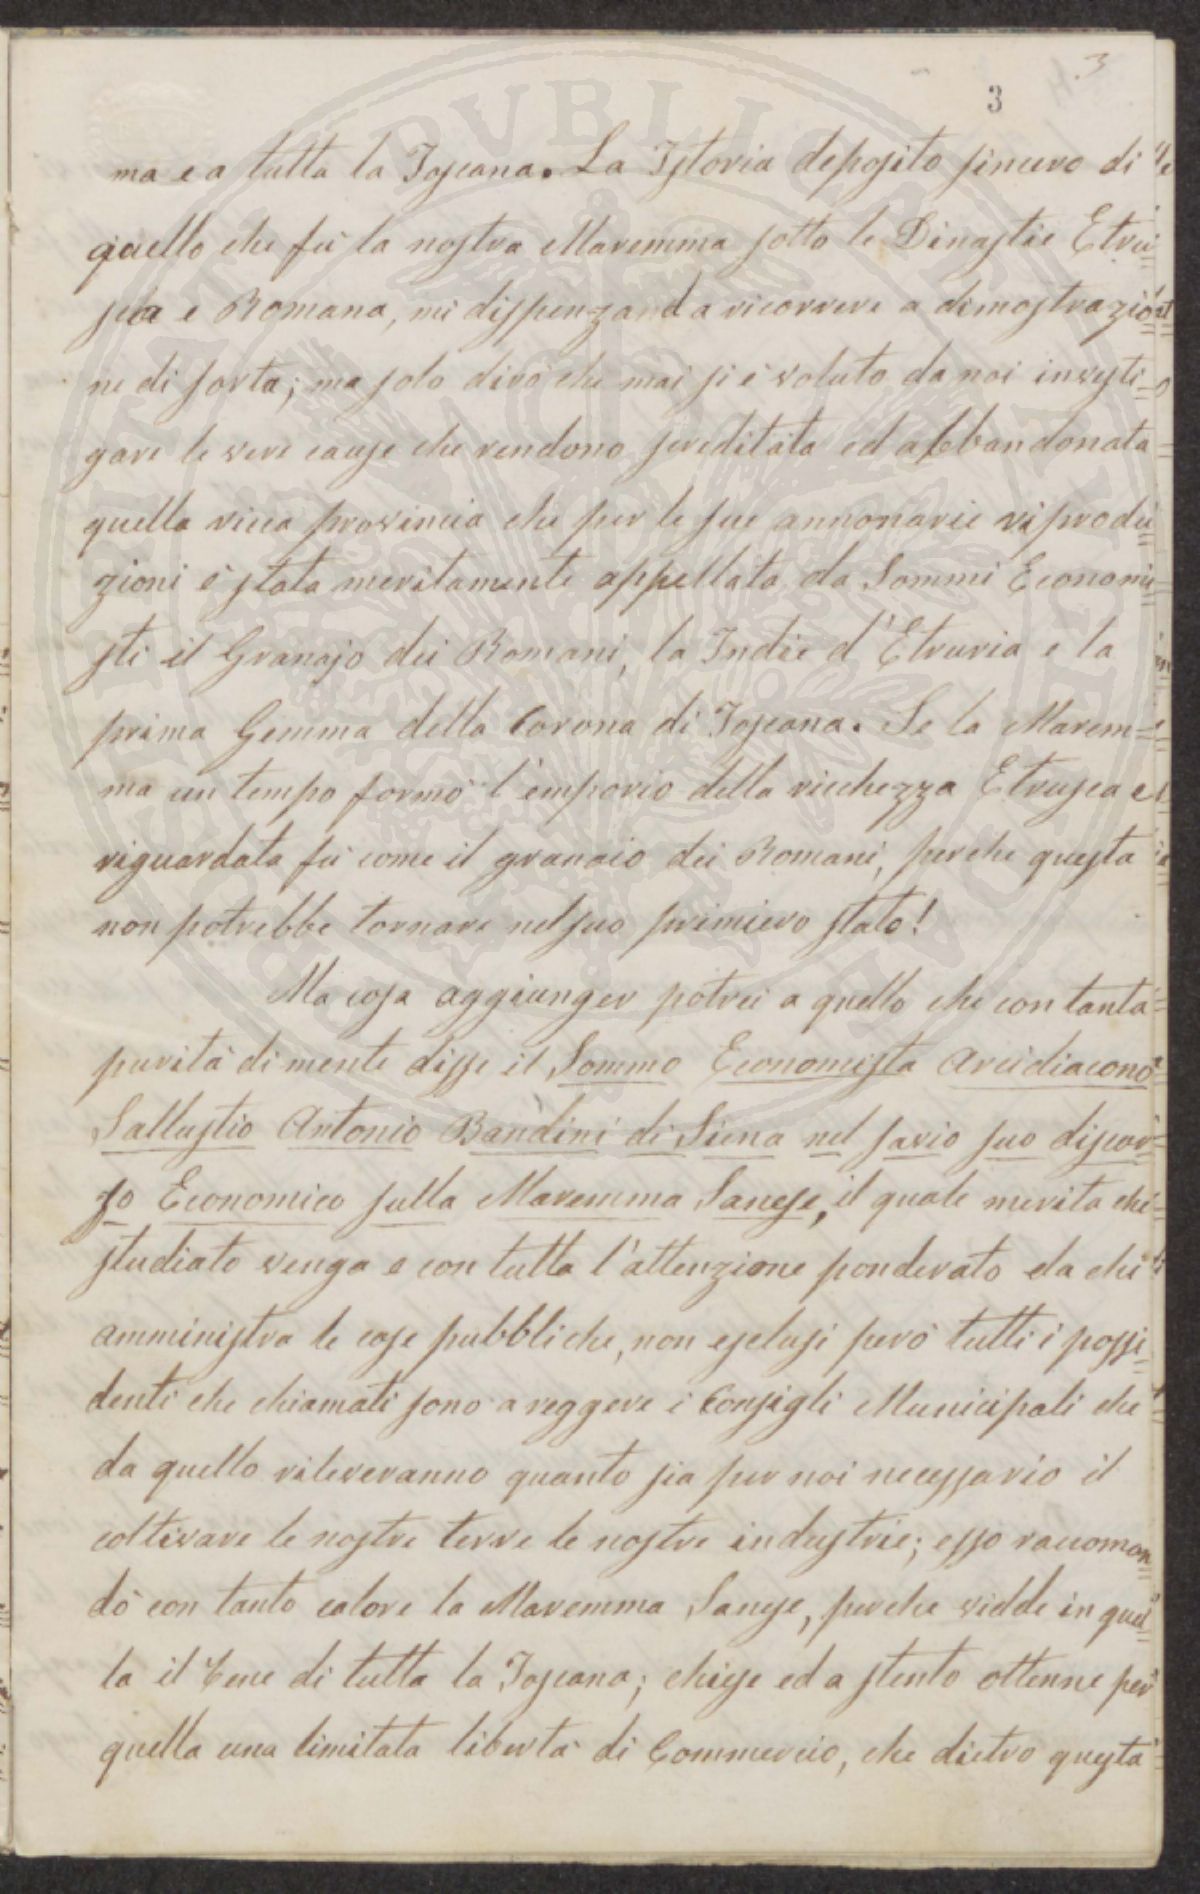 3
3
ma e a tutta la Toscana. La Istoria deposito sincero di
quello che fù la nostra Maremma sotto le Dinastie Etru=
sca e Romana, mi dispenzanda ricorrere a dimostrazio=
ne di sorta; ma solo dirò che mai si è voluto da noi investi=
gare le vere cause che rendono screditata ed abbandonata
quella ricca provincia che per le sue annonarie riprodu=
zioni è stata meritamente appellata da Sommi Economi=
sti il Granajo dei Romani, la Indie d'Etruria e la
prima Gemma della Corona di Toscana. Se la Marem=
ma un tempo formò l'emporio della ricchezza Etrusca e
riguardata fù come il granaio dei Romani, perche questa
non potrebbe tornare nel suo primiero stato!
Ma cosa aggiunger potrei a quello che con tanta
purità di mente disse il Sommo Economista Arcidiacono
Sallustio Antonio Bandini di Siena nel savio suo discor=
so Economico sulla Maremma Sanese, il quale merita che
studiato venga e con tutta l'attenzione ponderato da chi
amministra le cose pubbliche, non esclusi però tutti i possi=
denti che chiamati sono a reggere i Consigli Municipali che
da quello rileveranno quanto sia per noi necessario il
coltivare le nostre terre le nostre industrie; esso raccoman=
dò con tanto calore la Maremma Sanese, perche vidde in quel=
la il bene di tutta la Toscana; chiese ed a stento ottenne per
quella una limitata libertà di Commercio, che dietro questa